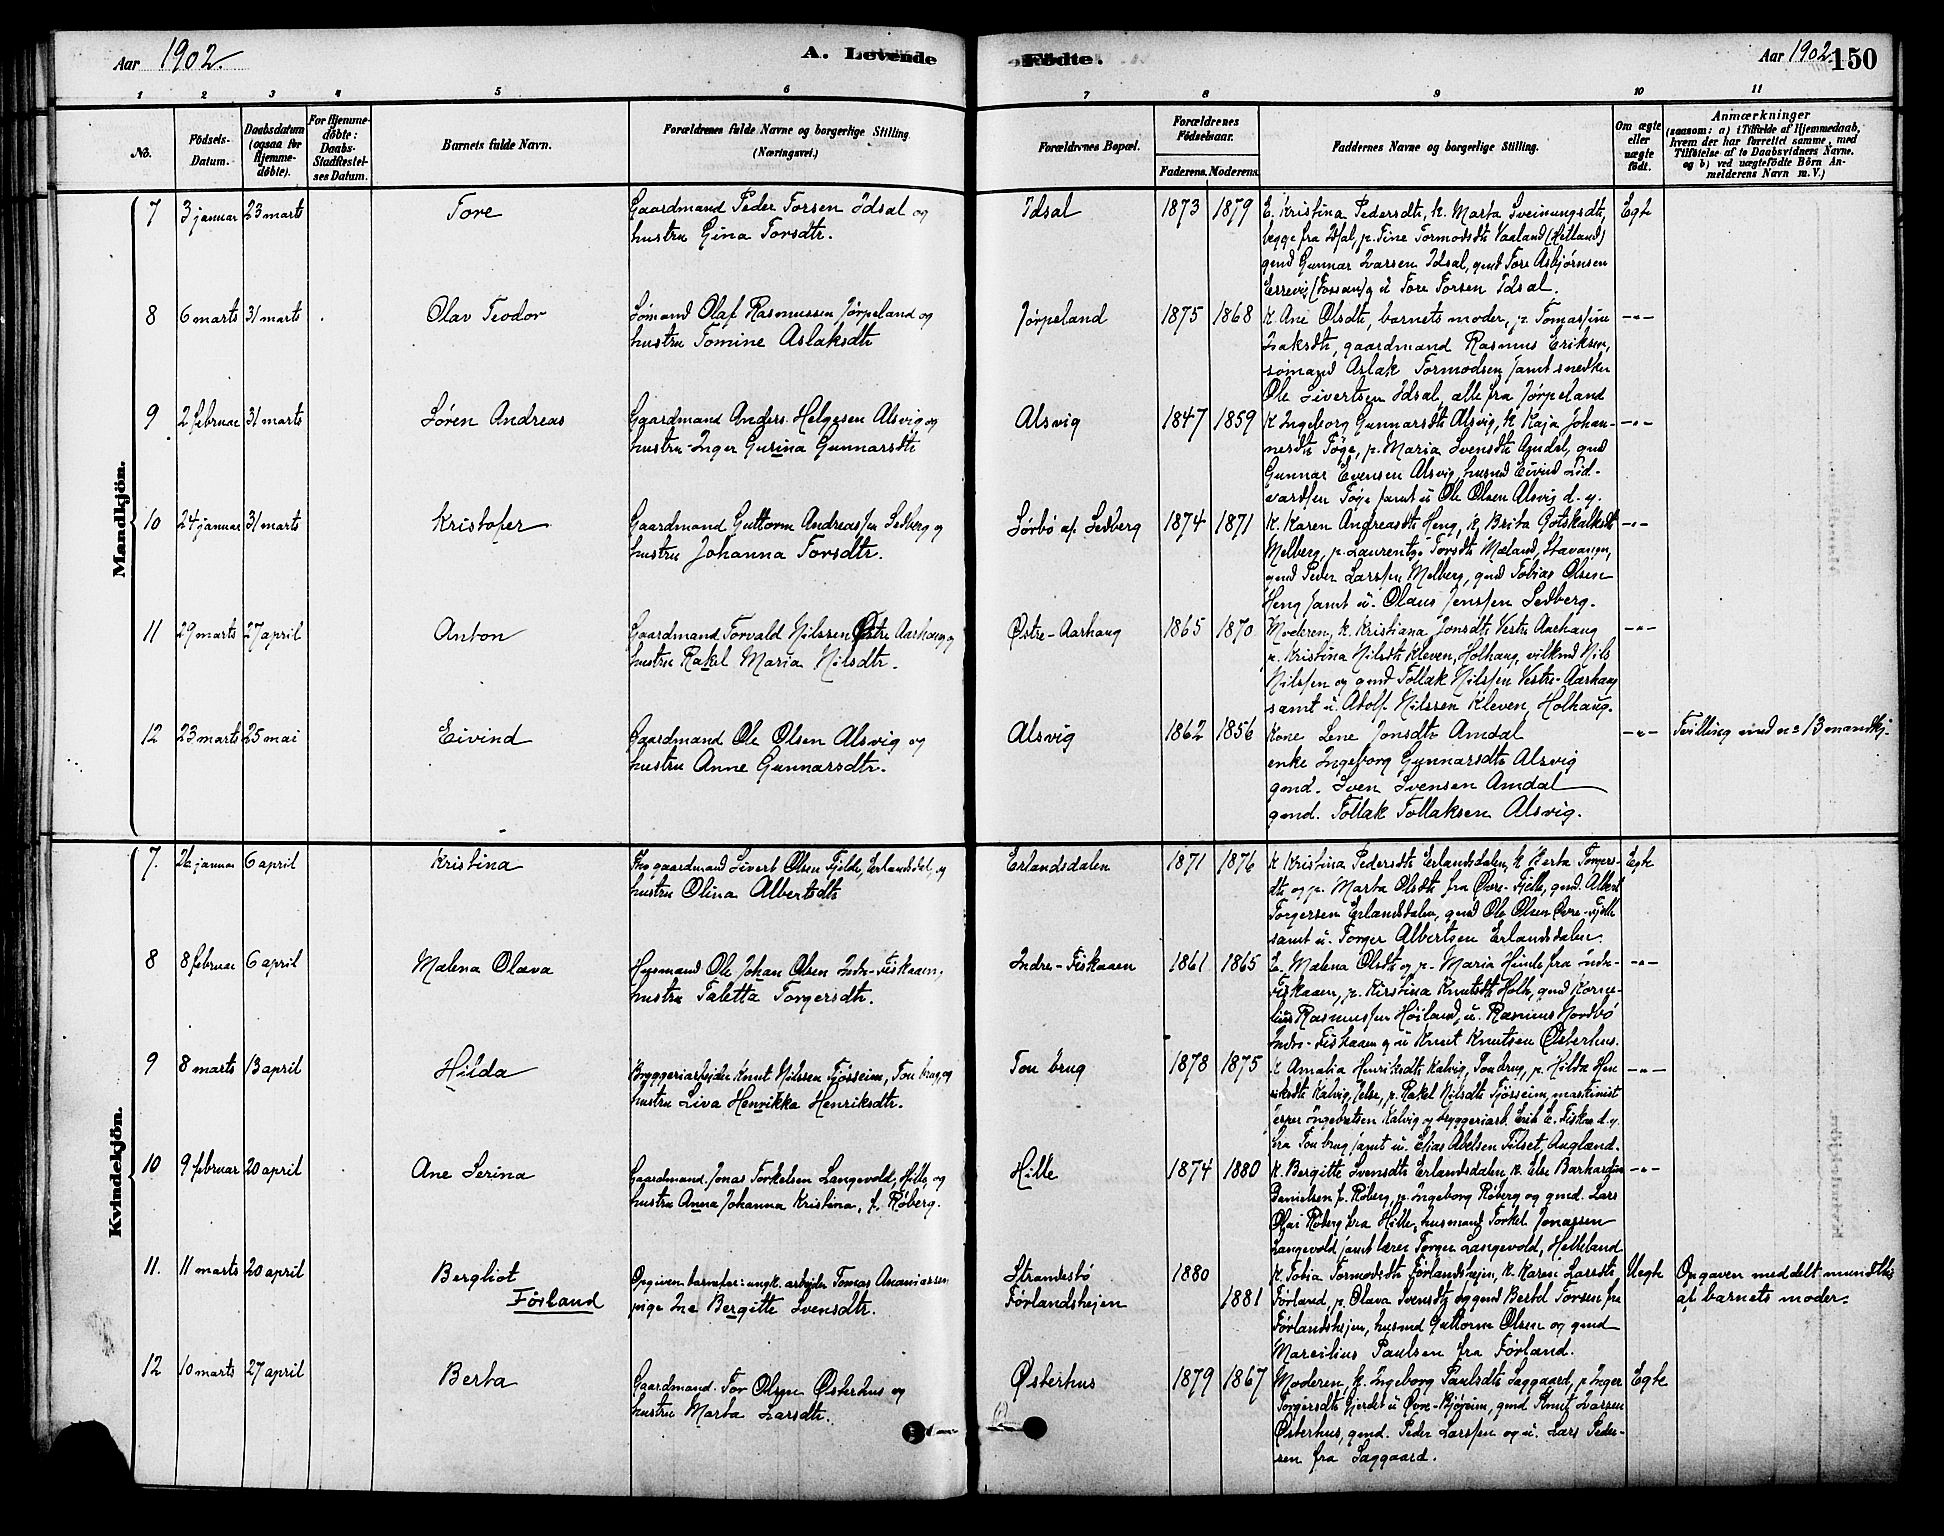 Aar 1902.
A. Levende
Fødte.
Aar 1902.
150
1 2 3 4 5 6 7 8 9 10 11
No.
Födsels-
Datum.
Daabsdatum
(ogsaa for
Hjemme-
døbte).
For Hjemme-
døbte:
Daabs-
Stadfæstel-
ses Datum.
Barnets fulde Navn.
Forældrenes fulde Navne og borgerlige Stilling.
(Næringsvei.)
Forældrenes Bopæl.
Forældrenes
Födselsaar.
Faderens. Moderens.
Faddernes Navne og borgerlige Stilling.
Om ægte
eller
uægte
født.
Anmærkninger
(saasom: a) i Tilfælde af Hjemmedaab,
hvem der har forrettet samme, med
Tilføielse af to Daabsvidners Navne.
og b) ved uægtefødte Börn An-
melderens Navn m. V.)
Mandkjön.
7 3 januar 23 marts Tore
Gaardmand Peder Torsen Idsal og
hustru Gina Torsdtr.
Idsal 1873 1879
E. Kristina Pedersdtr, k. Marta Sveinungsdtr,
begge fra Idsal, p. Tine Tormodsdtr Vaaland (Hetland)
gmd Gunnar Ivarsen Idsal, gmd Tore Asbjørnsen
Essevig (Fossan) og u Tore Torsen Idsal.
Egte
8 6 marts 31 marts Olav Teodor
Sømand Olaf Rasmussen Jørpeland og
hustru Tomine Aslaksdtr
Jørpeland 1875 1868
K. Ane Olsdtr, barnets moder, p. Tomasine
Isaksdtr, gaardmand Rasmus Eriksen,
sømand Aslak Tormodsen samt snedker
Ole Sivertsen Idsal, alle fra Jørpeland
-"-
9 2 februar 31 marts Søren Andreas
Gaardmand Anders Helgesen Alsvig og
hustru Inger Gurina Gunnarsdtr
Alsvig 1847 1859
K. Ingeborg Gunnarsdtr Alsvig, k. Kaja Johan-
nesdtr Tøge, p. Maria Svensdtr Amdal, gmd
Gunnar Evensen Alsvig, husmd Eivind Lid-
vardsen Tøge samt u Ole Olsen Alsvig d. y.
-"-
10 24 januar 31 marts Kristofer
Gaardmand Guttorm Andreassen Sedberg og
hustru Johanna Torsdtr.
Sørbø af Sedberg 1874 1871
K. Karen Andreasdtr Heng, k. Brita Gotskalksdtr
Melberg, p. Laurentze Torsdtr Mæland, Stavanger,
gmd Peder Larssen Melberg, gmd Tobias Olsen
Heng samt u. Olaus Jenssen Sedberg.
-"-
11 29 marts 27 april Anton
Gaardmand Torvald Nilssen Østre Aarhaug og
hustru Rakel Maria Nilsdtr.
Østre-Aarhaug 1865 1870
Moderen, k. Kristiana Jonsdtr Vestre Aarhaug
u. Kristina Nilsdtr Kleven, Holhaug, Nils
Nilssen og gmd Tollak Nilssen Vestre-Aarhaug
samt u. Adolf Nilssen Kleven, Holhaug.
-"-
12 23 marts 25 mai Eivind
Gaardmand Ole Olsen Alsvig og
hustru Anne Gunnarsdtr.
Alsvig 1862 1856
Kone Lene Jonsdtr Amdal
enke Ingeborg Gunnarsdtr Alsvig
gmd. Sven Svensen Amdal
gmd. Tollak Tollaksen Alsvig.
-"-
Tvilling med no 13 mandkj.
Kvindekjön.
7. 26 januar 6 april Kristina
gaardmand Sivert Olsen Fjelde, Erlandsdal, og
hustru Olina Albertsdtr
Erlandsdalen 1871 1876
K Kristina Pedersdtr Erlandsdalen, k. Berta Torgers-
dtr og p. Marta Olsdtr fra Øvre-Fjelle, gmd. Albert
Torgersen Erlandsdalen, gmd Ole Olsen Øvre-Fjelle
samt u. Torger Albertsen Erlandsdalen.
Egte
8 8 februar 6 april Malena Olava
Husmand Ole Johan Olsen Indre-Fiskaaen,
hustru Taletta Torgersdtr.
Indre-Fiskaaen 1861 1865
E. Malena Olsdtr og p. Maria Himle fra Indre-
Fiskaaen, p. Kirstina Knutsdtr Holte, gmd Korne-
lius Rasmussen Høiland, u. Rasmus Nordbø
Indre-Fiskaaen og u Knut Knutsen Østerhus.
-"-
9 8 marts 13 april Hilda
Bryggeriarbejder Knut Nilssen Fjøsseim, Tou brug, og
hustru Liva Henrikka Henriksdtr.
Tou brug 1878 1875
K Amalia Henriksdtr Kalvig, Tou brug, p. Hilda Hen-
riksdtr Kalvig, Jelse, p. Rakel Nilsdtr Fjøsseim, maskinist
Jesper Ingebretsen Kalvig og bryggeriarb. Erik E. Fiskaa d. y.
fra Tou brug samt u. Elias Abelsen Tilset, Aagland.
-"-
10 9 februar 20 april Ane Serina
Gaardmand Jonas Torkelsen Langevold, Hille, og
hustru Anna Johanna Kristina, f. Røberg.
Hille 1874 1880
K. Bergitte Svensdtr Erlandsdalen, k. Else Barhardine
Danielsen f. Røberg, p. Ingeborg Røberg og gmd. Lars
Olai Røberg fra Hille, husmand Torkel Jonassen
Langevold samt lærer Torger Langevold, Helleland
-"-
11. 11 marts 20 april Bergliot
Førland
Opgiven barnefar: ungk. arbejder Tomas Ananiassen
pige Ine Bergitte Svensdtr.
Strandesbø
Førlandshejen
1880
1881
K. Tobia Tormodsdtr Førlandshejen, k. Karine Larsdtr
Førland, p. Olava Svensdtr og gmd Bertel Torsen fra
Førlandshejen, husmd Guttorm Olsen og gmd
Marsilius Paulsen fra Førland.
Uegte
Opgaven meddelt mundtlig
af barnets moder.
12 10 marts 27 april Berta
Gaardmand Tor Olsen Østerhus og
hustru Marta Larsdtr.
Østerhus 1879 1867
Moderen, k. Ingeborg Paulsdtr Saggaard, p Inger
Torgersdtr Gjerdet u Øvre-Bjøreim, gmd Knut Ivarsen
Østerhus, gmd. Peder Larssen og u. Lars Peder-
sen fra Saggaard.
Egte